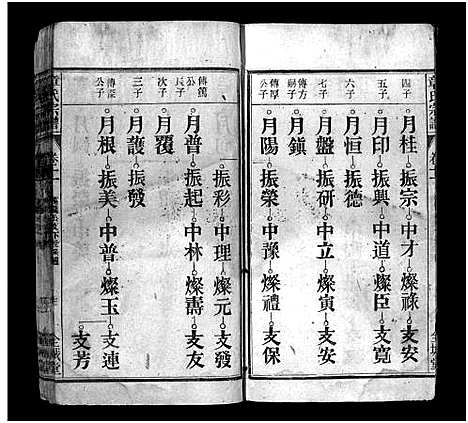 章氏宗譜
卷十一
四子
月桂 振宗 中才 燦祿
五子
月印 振興 中道 燦臣 支寬
六子
月恒 振德
七子
月盤 振研 中立 燦寅 支安
傳方嗣子
月鎮
傳厚公子
月陽 振榮 中豫 燦禮 支保
傳篤長子
月普 振彩 中理 燦元 支發
振起 中林 燦壽 支友
次子
月覆
三子
月護 振發
傳深公子
月根 振美 中普 燦玉 支連
支芳
章氏宗譜